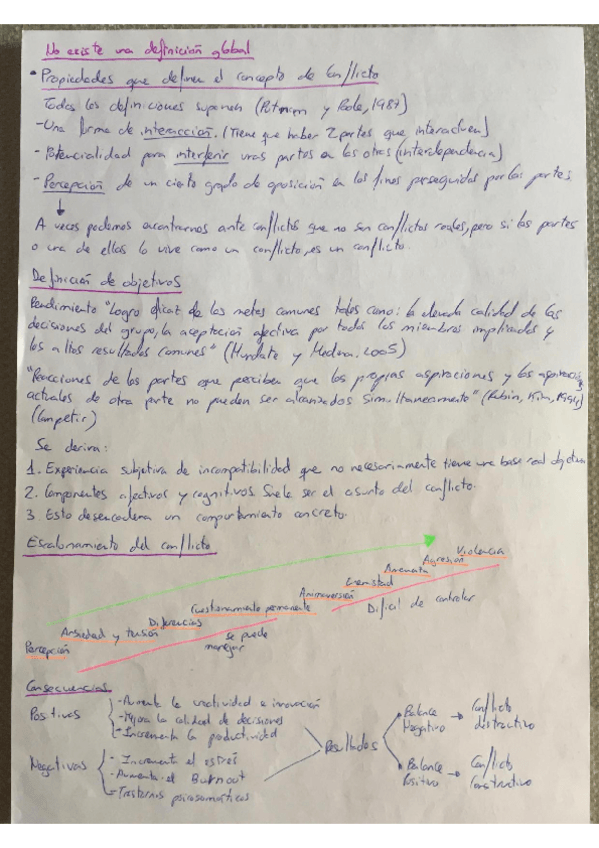 No existe una definición global
• Propiedades que definen el concepto de Conflicto
Todas las definiciones suponen (Putnam y Poole, 1987)
- Una forma de interacción. (Tiene que haber 2 partes que interactúen)
- Potencialidad para interferir unas partes en las otras (interdependencia)
- Percepción de un cierto grado de oposición en los fines perseguidos por las partes
A veces podemos encontrarnos ante conflictos que no son conflictos reales, pero si las partes
o una de ellas lo vive como un conflicto, es un conflicto.
Definición de objetivos
Rendimiento "Logro eficaz de las metas comunes tales como: la elevada calidad de las
decisiones del grupo, la aceptación afectiva por todos los miembros implicados y
los altos resultados comunes" (Munduate y Medina, 2005)
"Reacciones de las partes que perciben que las propias aspiraciones y las aspiraciones
actuales de otra parte no pueden ser alcanzados simultaneamente" (Rubin, Kim,
(Competir)
Se deriva:
1. Experiencia subjetiva de incompatibilidad que no necesariamente tiene una base real objetiva
2. Componentes afectivos y cognitivos. Suele ser el asunto del conflicto.
3. Esto desencadena un comportamiento concreto.
Escalonamiento del conflicto
Violencia
Agresión
Amenaza
Hostilidad
Animadversión
Cuestionamiento permanente
Diferencias
Ansiedad y tensión
Percepción
se puede
manejar
Dificil de controlar
Consecuencias
Positivas
- Aumenta la creatividad e innovación
- Mejora la calidad de decisiones
- Incrementa la productividad
Negativas
- Incrementa el estrés
- Aumenta el Burnout
- Trastornos psicosomáticos
Resultados
• Balance Negativo → Conflicto destructivo
• Balance Positivo → Conflicto Constructivo